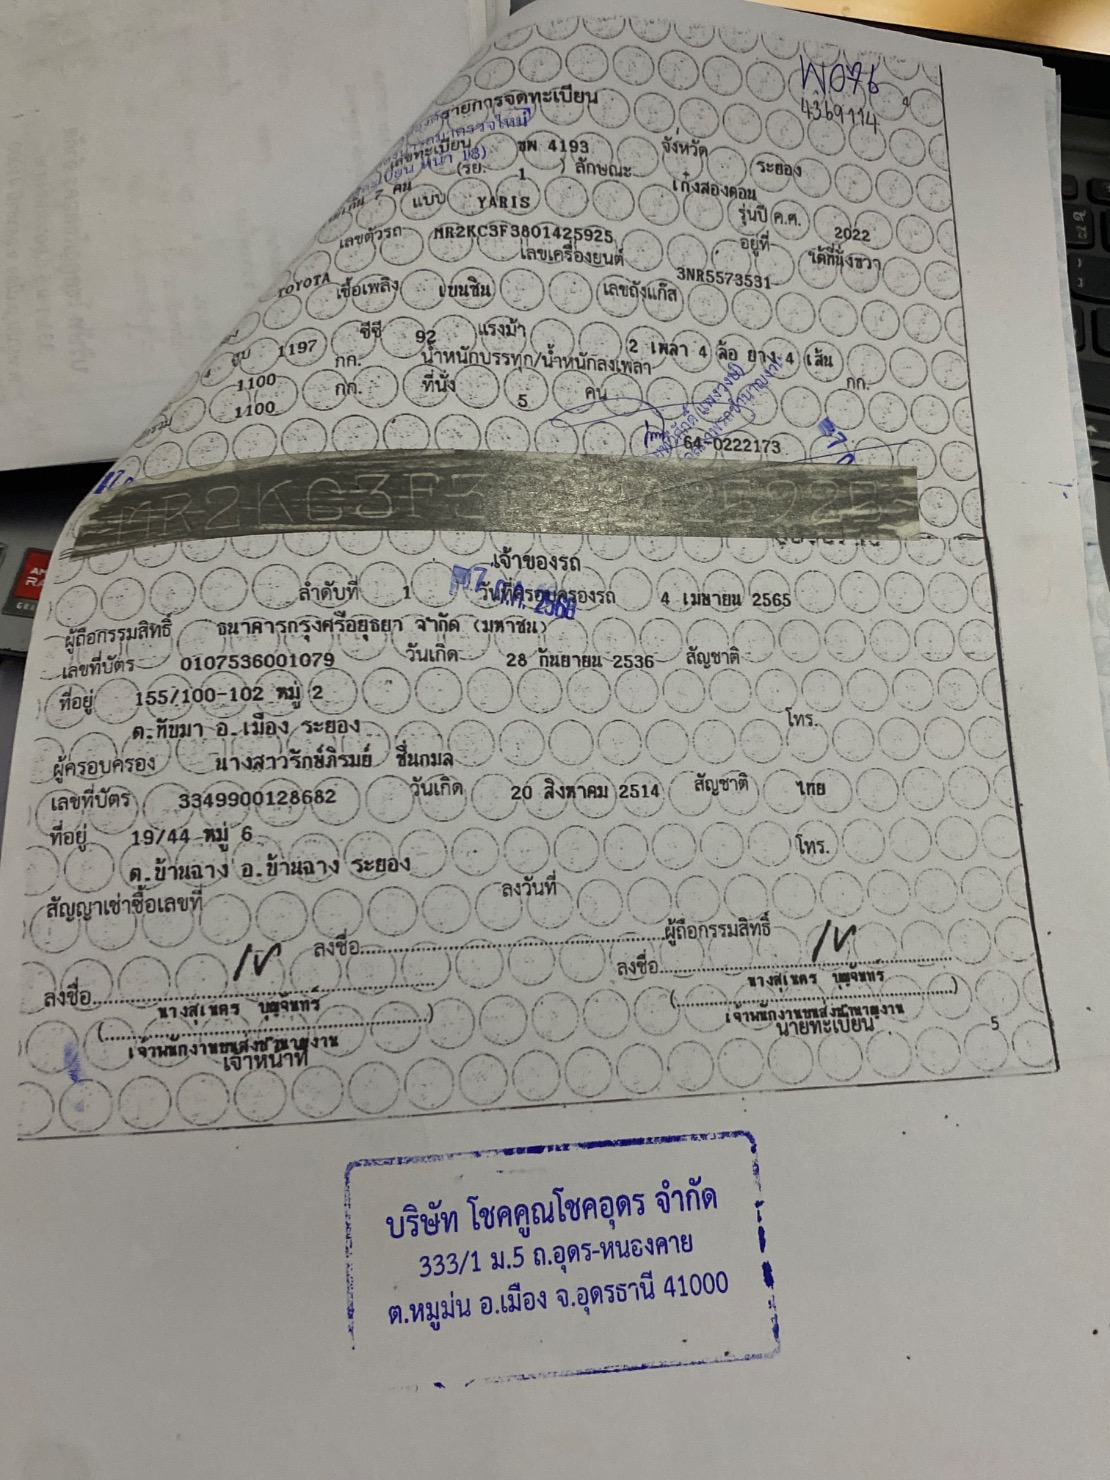 W076
4369114
4
รายการจดทะเบียน
เลขทะเบียน ขพ 4193 จังหวัด ระยอง
(รย. 1 ) ลักษณะ เก๋งสองตอน
แบบ YARIS รุ่นปี ค.ศ. 2022
เลขตัวรถ MR2KC3F3801425925 อยู่ที่ ใต้ที่นั่งขวา
เลขเครื่องยนต์ 3NR5573531
TOYOTA เชื้อเพลิง เบนซิน เลขถังแก๊ส
4 สูบ 1197 ซีซี 92 แรงม้า 2 เพลา 4 ล้อ ยาง 4 เส้น
1100 กก. น้ำหนักบรรทุก/น้ำหนักลงเพลา กก.
1100 กก. ที่นั่ง 5 คน
64-0222173
MR2KC3F3
เจ้าของรถ
ลำดับที่ 1 วันที่ครอบครองรถ 4 เมษายน 2565
ผู้ถือกรรมสิทธิ์ ธนาคารกรุงศรีอยุธยา จำกัด (มหาชน)
เลขที่บัตร 0107536001079 วันเกิด 28 กันยายน 2536 สัญชาติ
ที่อยู่ 155/100-102 หมู่ 2
ต.ทับมา อ.เมือง ระยอง โทร.
ผู้ครอบครอง นางสาวรักษ์ภิรมย์ ชื่นกมล
เลขที่บัตร 3349900128682 วันเกิด 20 สิงหาคม 2514 สัญชาติ ไทย
ที่อยู่ 19/44 หมู่ 6
ต.บ้านฉาง อ.บ้านฉาง ระยอง โทร.
สัญญาเช่าซื้อเลขที่ ลงวันที่
ลงชื่อ ผู้ถือกรรมสิทธิ์
ลงชื่อ ลงชื่อ
เจ้าพนักงานขนส่งชำนาญงาน เจ้าพนักงานขนส่งชำนาญงาน
เจ้าหน้าที่ นายทะเบียน
5
บริษัท โชคคูณโชคอุดร จำกัด
333/1 ม.5 ถ.อุดร-หนองคาย
ต.หมูม่น อ.เมือง จ.อุดรธานี 41000